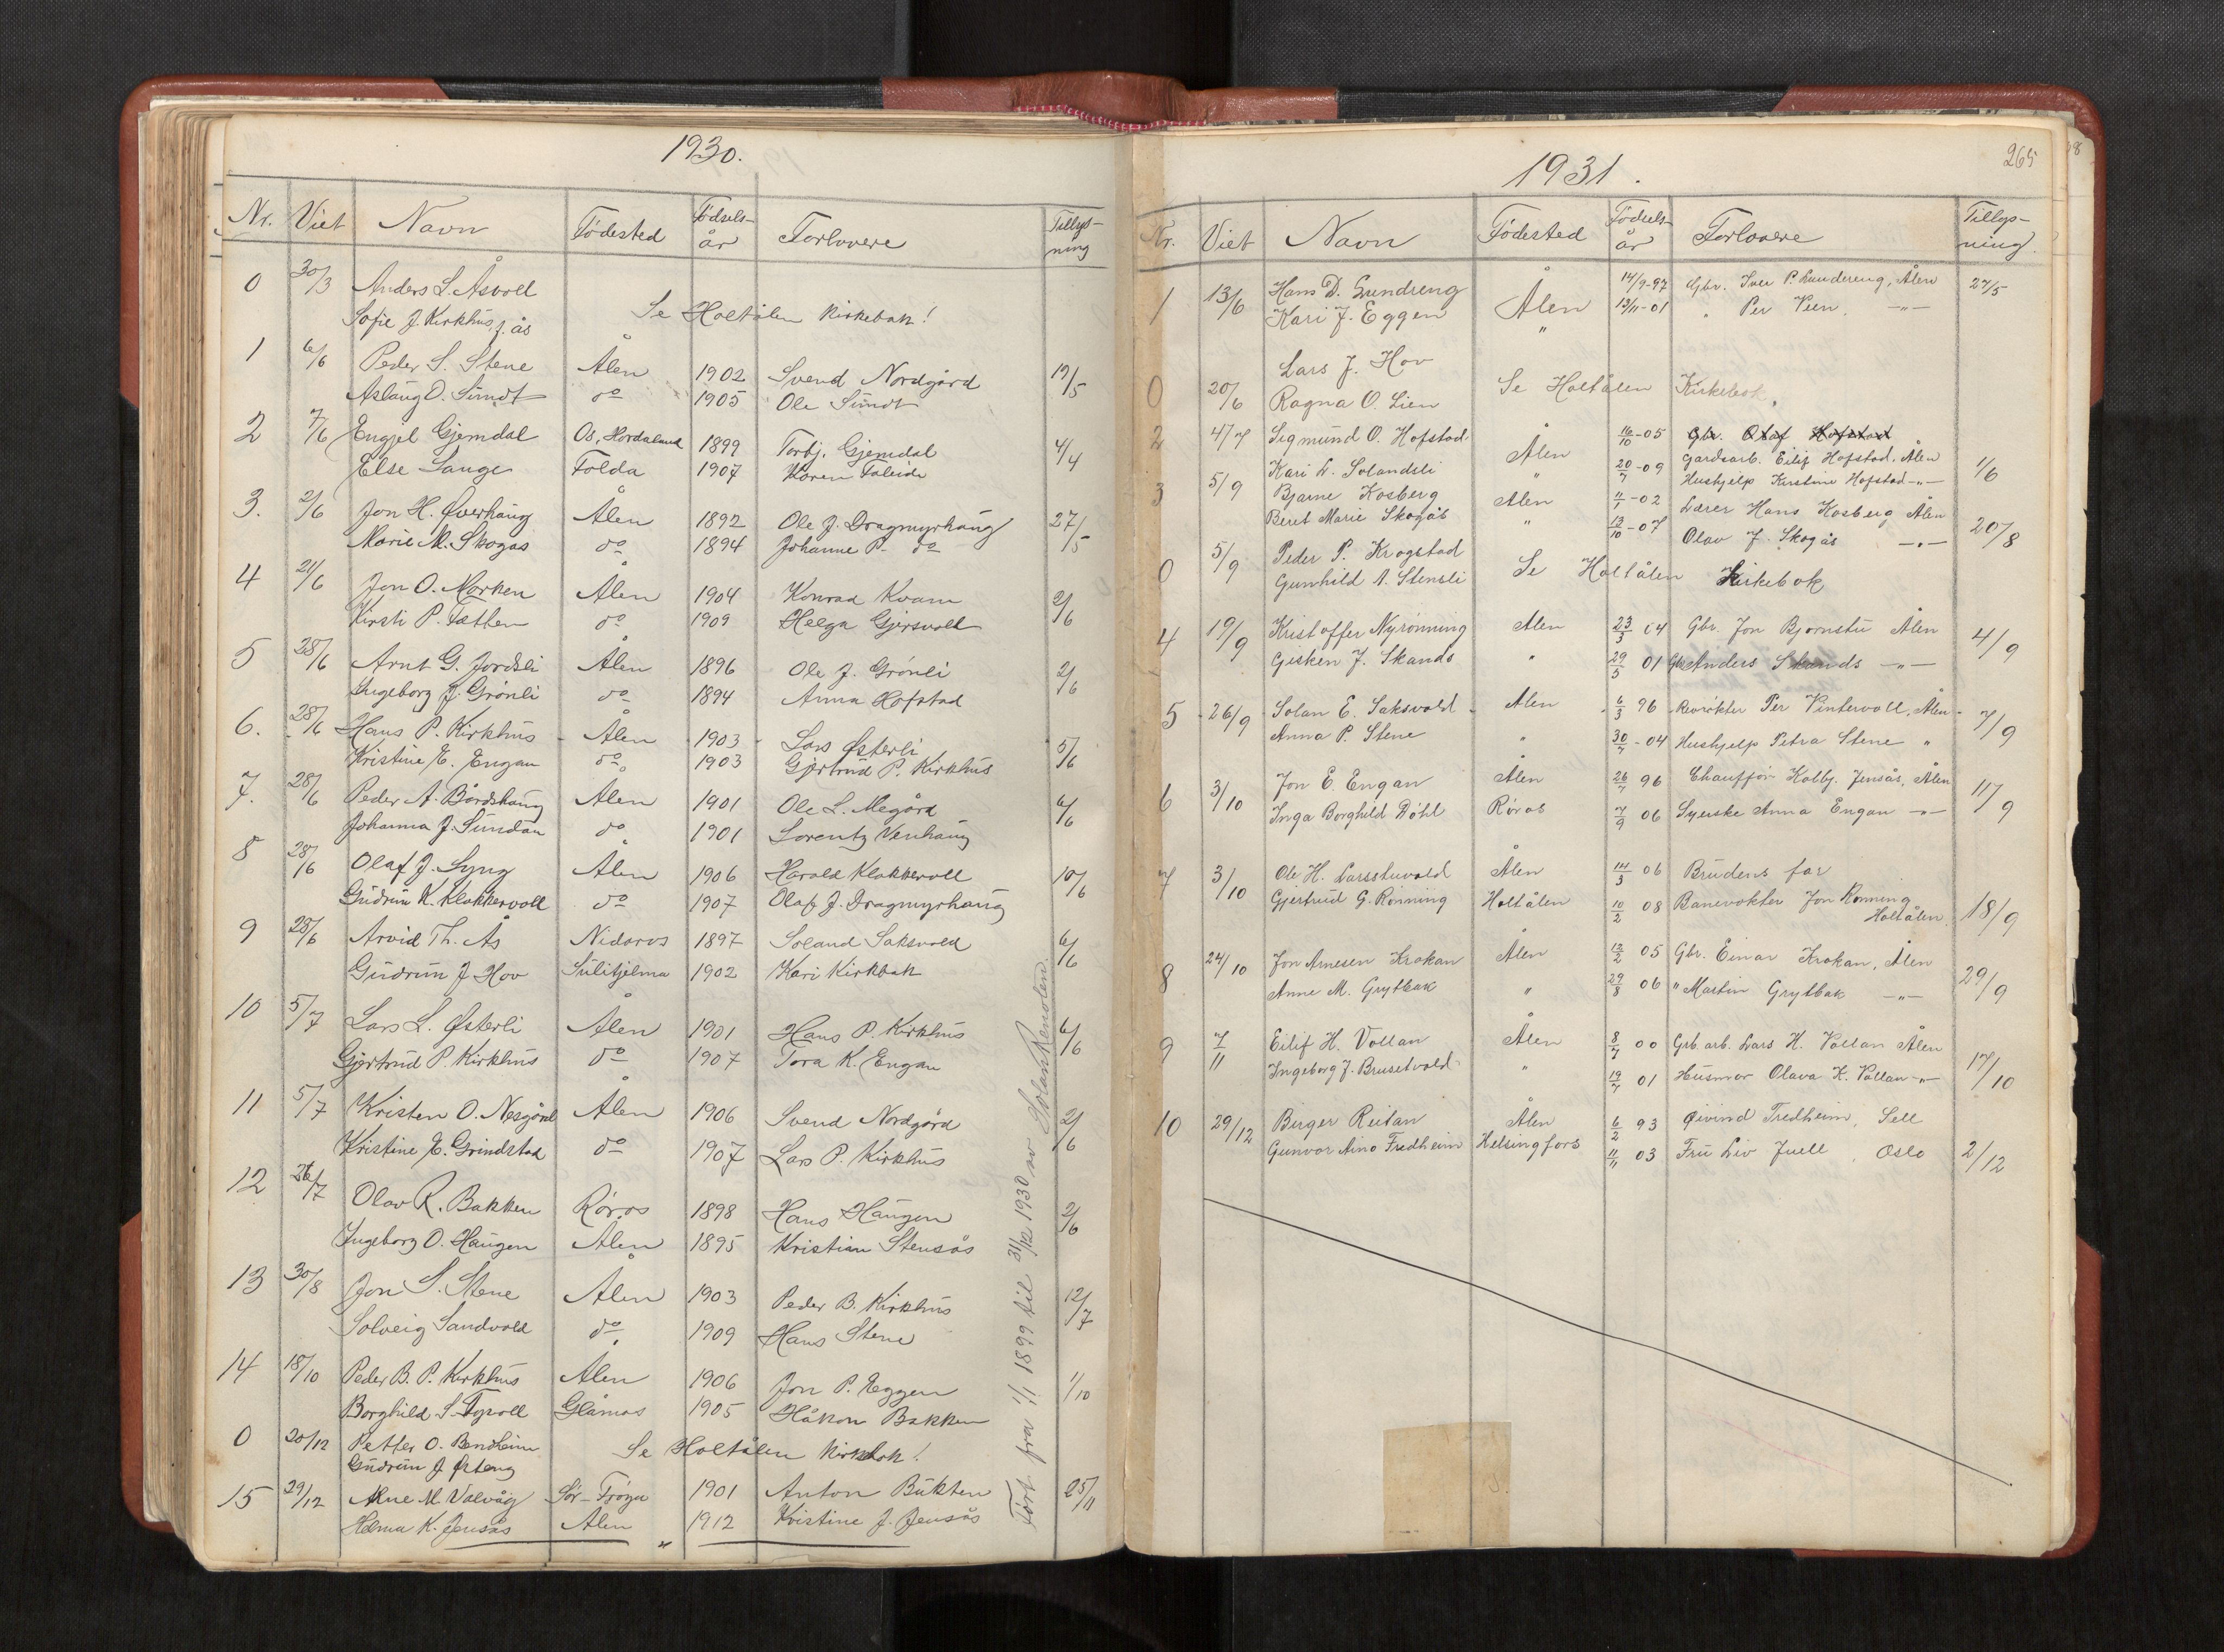 1930.
Nr. Viet Navn Fødested Fødsels-år Forlovere Tillys-ning
0 30/3 Anders L. Åsvoll
Sofie J. Kirkhus, f. ås Se Holtålen kirkebok!
1 6/6 Peder S. Stene Ålen 1902 Svend Nordgård 19/5
Aslaug O. Sundt do 1905 Ole Sundt
2 7/6 Engjel Gjemdal Os, Hordaland 1899 Torbj. Gjemdal 4/4
Else Lange Folda 1907 Karen
3. 2/6 Jon H. Øverhaug Ålen 1892 Ole J. Dragmyrhaug 27/5
Marie M. Skogås do 1894 Johanne P. do
4 21/6 Jon O. Morken Ålen 1904 Konrad Kvam 2/6
Kirsti P. Tætten do 1909 Helga Gjersvoll
5 28/6 Arnt G. Jordsli Ålen 1896 Ole J. Grønli 2/6
Ingeborg J. Grønli do 1894 Anna Hofstad
6. 28/6 Hans P. Kirkhus Ålen 1903 Lars Østerli 5/6
Kristine E. Engan do 1903 Gjertrud P. Kirkhus
7. 28/6 Peder A. Bårdshaug Ålen 1901 Ole L. Megård 6/6
Johanna J. Sundan do 1901 Lorentz Venhaug
8 28/6 Olaf J. Lyng Ålen 1906 Harald Klokkervoll 10/6
Gudrun K. Klokkervoll do 1907 Olaf J. Dragmyrhaug
9 28/6 Arvid Th. Ås Nidaros 1897 Soland Saksvold 6/6
Gudrun J Hov Sulitjelma 1902 Kari Kirkbak
10 5/7 Lars L. Østerli Ålen 1901 Hans P. Kirkhus 6/6
Gjertrud P. Kirkhus do 1907 Tora K. Engan
11 5/7 Kristen O. Nesgård Ålen 1906 Svend Nordgård 2/6
Kristine E. Grindstad do 1907 Lars P. Kirkhus
12 26/7 Olav R. Bakken Røros 1898 Hans Haugen 2/6
Ingeborg O. Haugen Ålen 1895 Kristian Stensås
13 30/8 Jon S. Stene Ålen 1903 Peder B. Kirkhus 12/7
Solveig Sandvold do 1909 Hans Stene
14 18/10 Peder B. P. Kirkhus Ålen 1906 Jon P. Eggen 1/10
Borghild S. Tyvoll Glåmos 1905 Håkon Bakken
0 20/12 Petter O. Bendheim Se Holtålen kirkebok!
Gudrun J Østeng
15 29/12 Arne M. Valvåg Sør-Frøya 1901 Anton Bukten 25/11
Helma K. Jensås Ålen 1912 Kristine J. Jensås
Ført fra 1/1 1899 til 31/12 1930 av Solan Renolen.
265
1931.
Nr. Viet Navn Fødested Fødsels-år Forlovere Tillys-ning.
1 13/6 Hans D. Grundreng Ålen 14/9-97 Gbr. Iver P. Lundereng, Ålen 27/5
Kari J. Eggen " 13/11-01 " Per Veen, -"-
Lars J. Hov
0 20/6 Ragna O. Lien Se Holtålen Kirkebok.
2 4/7 Sigmund O. Hofstad Ålen 16/10-05 Gbr. Olaf Hofstad
Gardsarb. Eilif Hofstad, Ålen 1/6
Kari L. Solandsli " 20/7-09 Hushjelp Kirstine Hofstad -"-
3 5/9 Bjarne Kosberg Ålen 11/1-02 Lærer Hans Kosberg Ålen 20/8
Beret Marie Skogås " 13/10-07 Olav J. Skogås -"-
0 5/9 Peder P. Krogstad Se Holtålen Kirkebok
Gunhild A. Stensli
4 19/9 Kristoffer Nyrønning Ålen 23/3 04 Gbr. Jon Bjørnstu Ålen 4/9
Gisken J. Skands " 29/5 01 Gbr Anders Skands -"-
5 26/9 Solan E. Saksvold Ålen 6/3 96 Revrøkter Per Vintervoll, Ålen 7/9
Anna P. Stene " 30/7-04 Hushjelp Petra Stene "
6 3/10 Jon E. Engan Ålen 26/7 96 Chauffør Kolbj. Jensås, Ålen 11/9
Inga Borghild Døhl Røros 7/9 06 Syerske Anna Engan -"-
7 3/10 Ole H. Larsstuvold Ålen 14/3 06 Brudens far 18/9
Gjertrud G. Rønning Holtålen 10/2 08 Banevokter Jon Rønning
Holtålen
8 24/10 Jon Arnesen Krokan Ålen 12/2 05 Gbr. Einar Krokan, Ålen 29/9
Anne M. Grytbak " 29/8 06 " Martin Grytbak -"-
9 7/11 Eilif H. Vollan Ålen 8/7 00 Grb. arb. Lars H. Vollan Ålen 17/10
Ingeborg J. Brusetvold " 19/7 01 Husmor Olava K. Vollan -"-
10 29/12 Birger Reitan Ålen 6/2 93 Øivind Tredheim, Sell 2/12
Gunvor Aino Fredheim Helsingfors 11/11 03 Fru Liv Juell, Oslo